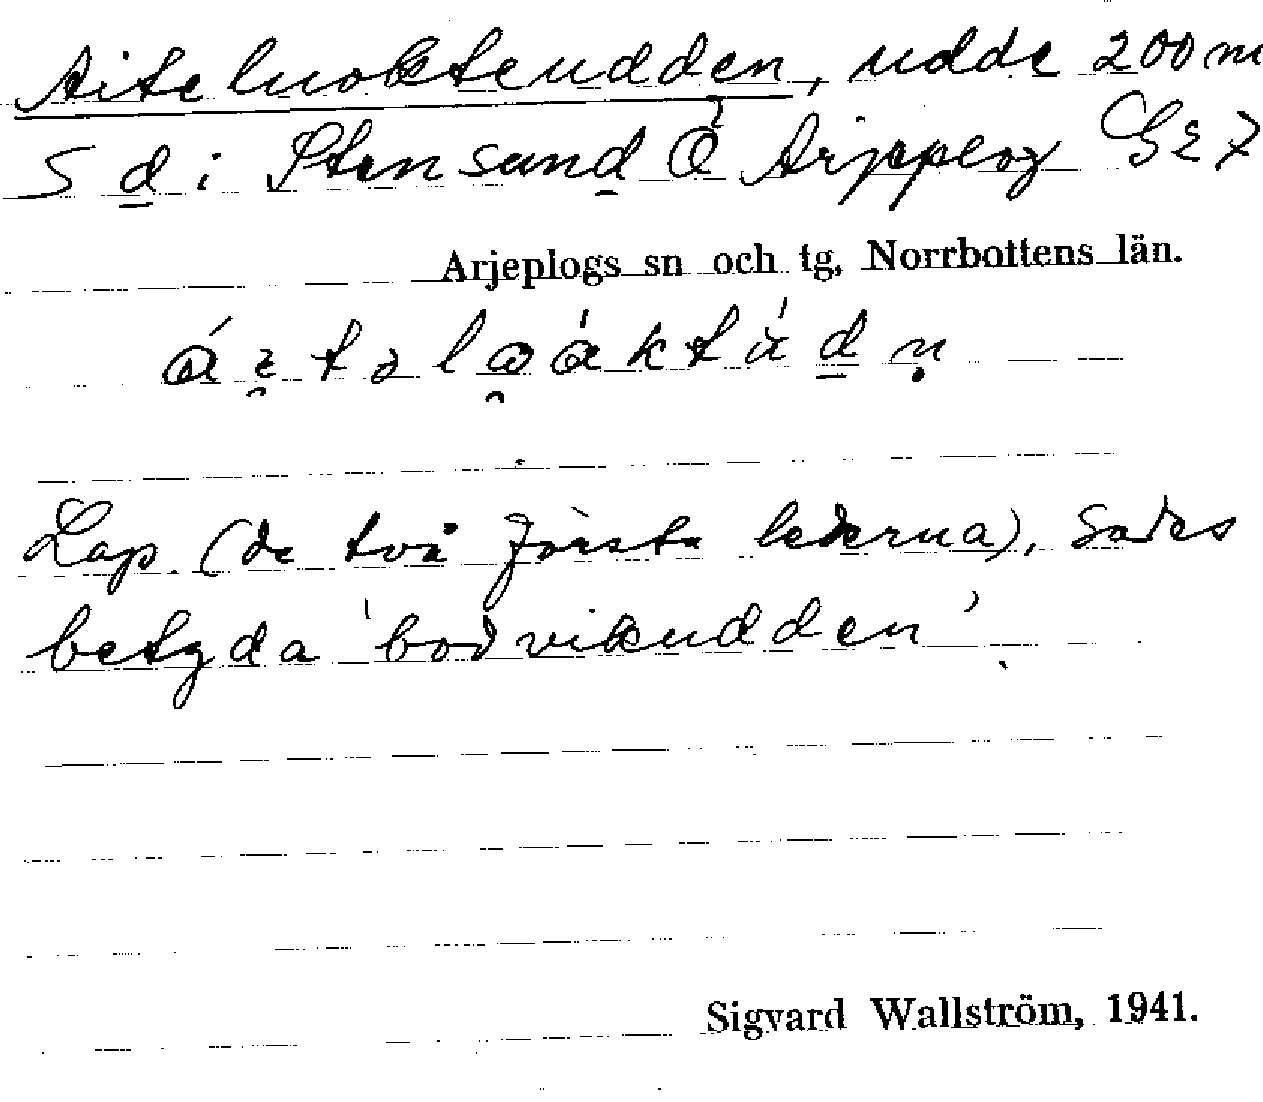 Aiteluokteudden, udde 200 m
S d i Stensund Ö Arjeplog GE7
Arjeplogs sn och tg, Norrbottens län.
Lap. (de två första lederna), sades
betyda 'bodvikudden'.
Sigvard Wallström, 1941.